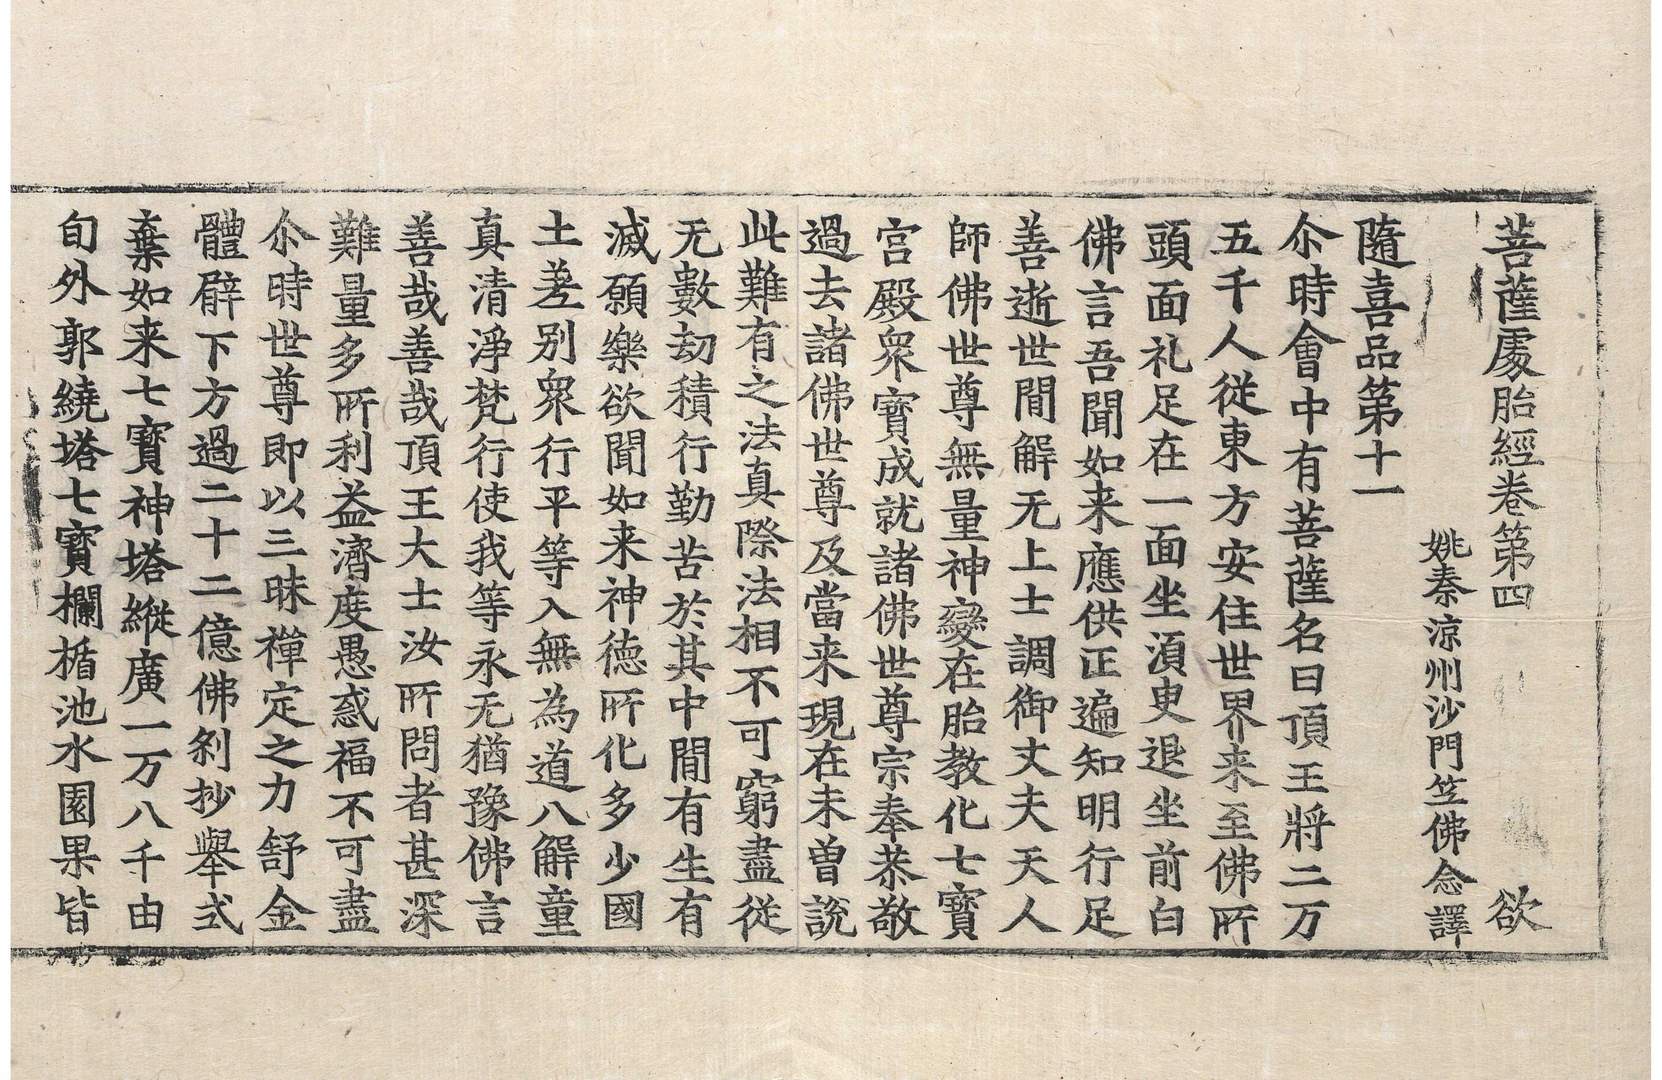 菩薩處胎經卷第四 欲
姚秦涼州沙門竺佛念譯
隨喜品第十一
尒時會中有菩薩名曰頂王將二万
五千人從東方安住世界来至佛所
頭面礼足在一面坐湏㬰退坐前白
佛言吾聞如来應供正遍知明行足
善逝世間解无上士調御丈夫天人
師佛世尊無量神變在胎教化七寳
宫殿衆寳成就諸佛世尊宗奉恭敬
過去諸佛世尊及當来現在未曽說
此難有之法真際法相不可窮盡従
无數劫積行勤苦於其中間有生有
滅願樂欲聞如来神徳所化多少國
土差别衆行平等入無為道八解童
真清淨梵行使我等永无猶豫佛言
善哉善哉頂王大士汝所問者甚深
難量多所利益濟度愚惑福不可盡
尒時世尊即以三昧禪定之力舒金
體臂下方過二十二億佛刹抄舉弍
棄如来七寳神塔縱廣一万八千由
旬外郭繞塔七寳欄楯池水園果皆